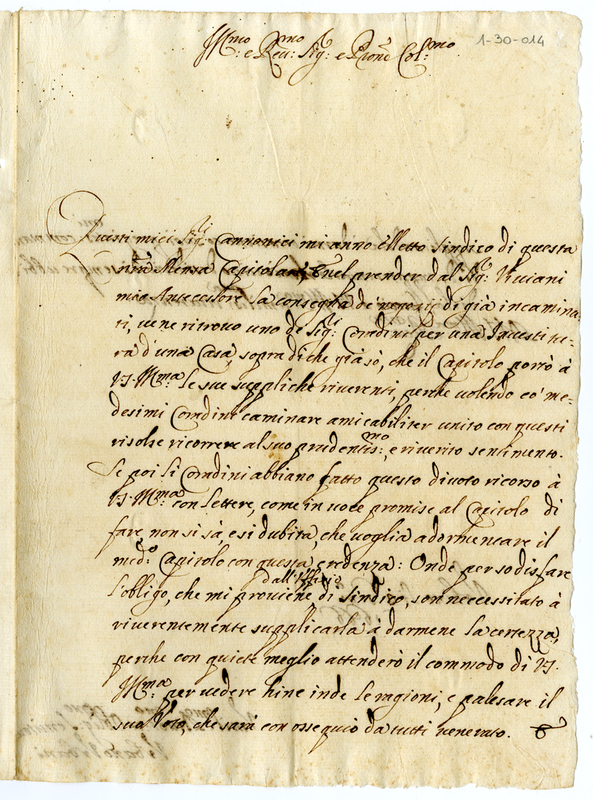 1-30-014
Ill:mo e Reu:mo Sig:r e Pron̄e Col:mo
Questi miei Sig:ri Cannonici mi anno elletto Sindico di questa
n̄ra Mensa Capitolare, e nel prender dal Sig:r Viviani
mio Antecessore la consegna de negozij di già incamina-
ti, ve ne ritrovo uno de Sig:ri Condini per una Inuestitu-
ra d'una Casa, sopra di che già sò, che il Capitolo portò à
V.S. Ill:ma le sue suppliche riverenti, perche volendo co' me-
desimi Condini caminare amicabiliter unito con questi
risolse ricorrere al suo prudentiss:mo, e riverito sentimento.
Se poi li Condini abbiano fatto questo divoto ricorso à
V.S. Ill:ma con lettere, come in voce promise al Capitolo di
fare, non si sà, e si dubita, che voglia adormentare il
med:o Capitolo con questa credenza: Onde per sodisfare
l'obligo, che mi proviene dall'Uffizio di Sindico, son neccessitato à
riverentemente supplicarla à darmene la certezza,
perche con quiete meglio attenderò il commodo di V.S.
Ill:ma per vedere hinc inde le ragioni, e palesare il
suo Voto, che sarà con ossequio da tutti venerato.